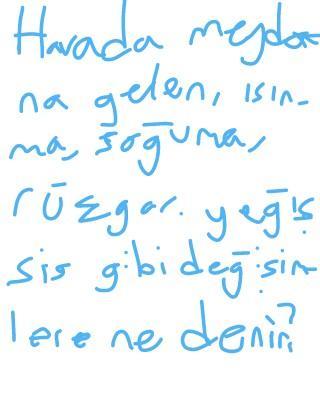 Havada meyda
na gelen, ısın-
ma, soğuma,
rüzgar. yeğış
sis gibi değişim
lere ne denir?